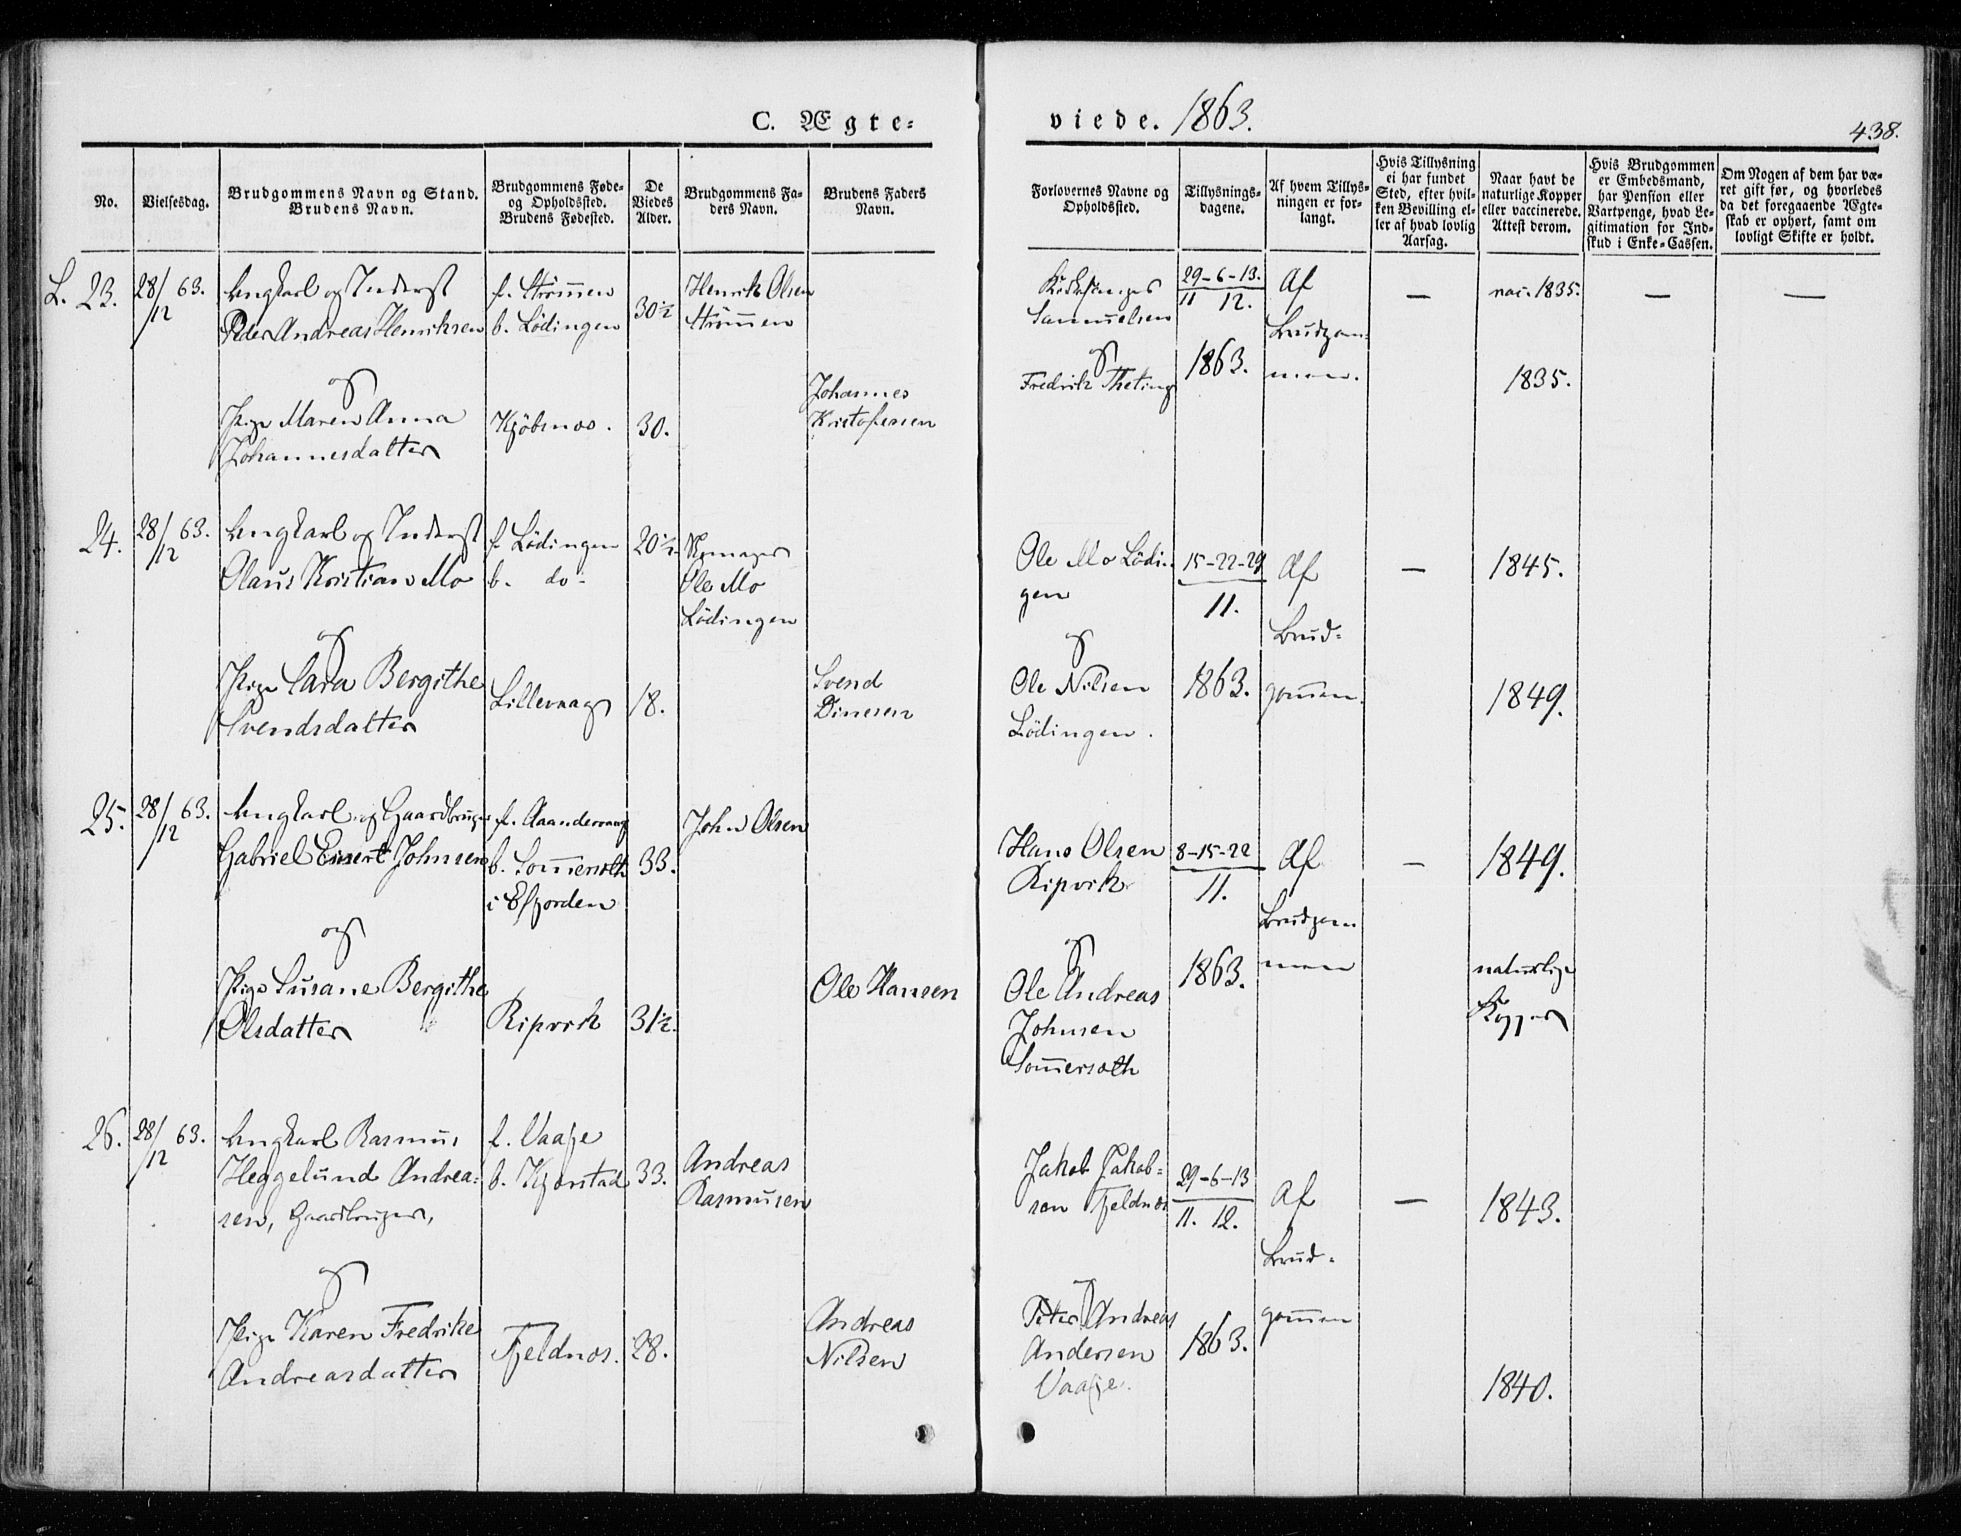 C. Ægte-
viede. 1863.
438.
No.
Vielsesdag.
Brudgommens Navn og Stand.
Brudens Navn.
Brudgommens Føde-
og Opholdssted.
Brudens Fødested.
De
Viedes
Alder.
Brudgommens Fa-
ders Navn.
Brudens Faders
Navn.
Forlovernes Navne og
Opholdssted.
Tillysnings-
dagene.
Af hvem Tillys-
ningen er for-
langt.
Hvis Tillysning
ei har fundet
Sted, efter hvil-
ken Bevilling el-
ler af hvad lovlig
Aarsag.
Naar havt de
naturlige Kopper
eller vaccinerede.
Attest derom.
Hvis Brudgommen
er Embedsmand,
har Pension eller
Vartpenge, hvad Le-
gitimation for Ind-
skud i Enke-Cassen.
Om Nogen af dem har væ-
ret gift før, og hvorledes
da det foregaaende Ægte-
skab er ophørt, samt om
lovligt Skifte er holdt.
L. 23.
28/12 63.
Ungkarl og Inderst
Peder Andreas Henriksen
og
Pige Maren Anna
Johannesdatter
f. Strömmen
b. Lödingen
Kjöbsnes.
30½
30.
Henrik Olsen
Strömmen
Johannes
Kristofersen
Samuelsen
og
Fredrik Theting
29-6-13.
11 12.
1863.
Af
Brudgom-
men.
—
vac. 1835.
1835.
—
—
24.
28/12 63.
Ungkarl og Inderst
Olaus Kristian Mo
og
Pige Sara Bergithe
Svendsdatter
f. Lödingen
b. do-
Lillevaag
20½.
18.
Ole Mo
Lödingen
Svend
Dinesen
Ole Mo Lödin-
gen
og
Ole Nilsen
Lödingen.
15-22-29
11.
1863.
Af
Brud-
gommen.
—
1845.
1849.
25.
28/12 63.
Ungkarl og Gaardbruger
Gabriel Einert Johnsen
og
Pige Susane Bergithe
Olsdatter
f. Aandervaag
b. Sommersæth
i Efjorden
Ripvik
33.
31½.
John Olsen
Ole Hansen
Hans Olsen
Ripvik
og
Ole Andreas
Johnsen
Sommersæth
8-15-22
11.
1863.
Af
Brudgom-
men
—
1849.
naturlige
Kopper
26.
28/12 63.
Ungkarl Rasmus
Heggelund Andrea-
sen, Gaardbruger,
og
Pige Karen Fredrike
Andreasdatter
f. Vaaje
b. Kjerstad
Fjeldnes.
33.
28.
Andreas
Rasmusen
Andreas
Nilsen
Jakob Jakob-
sen Fjeldnes
og
Peter Andreas
Andersen
Vaaje.
29-6-13
11. 12.
1863.
Af
Brud-
gommen
—
1843.
1840.